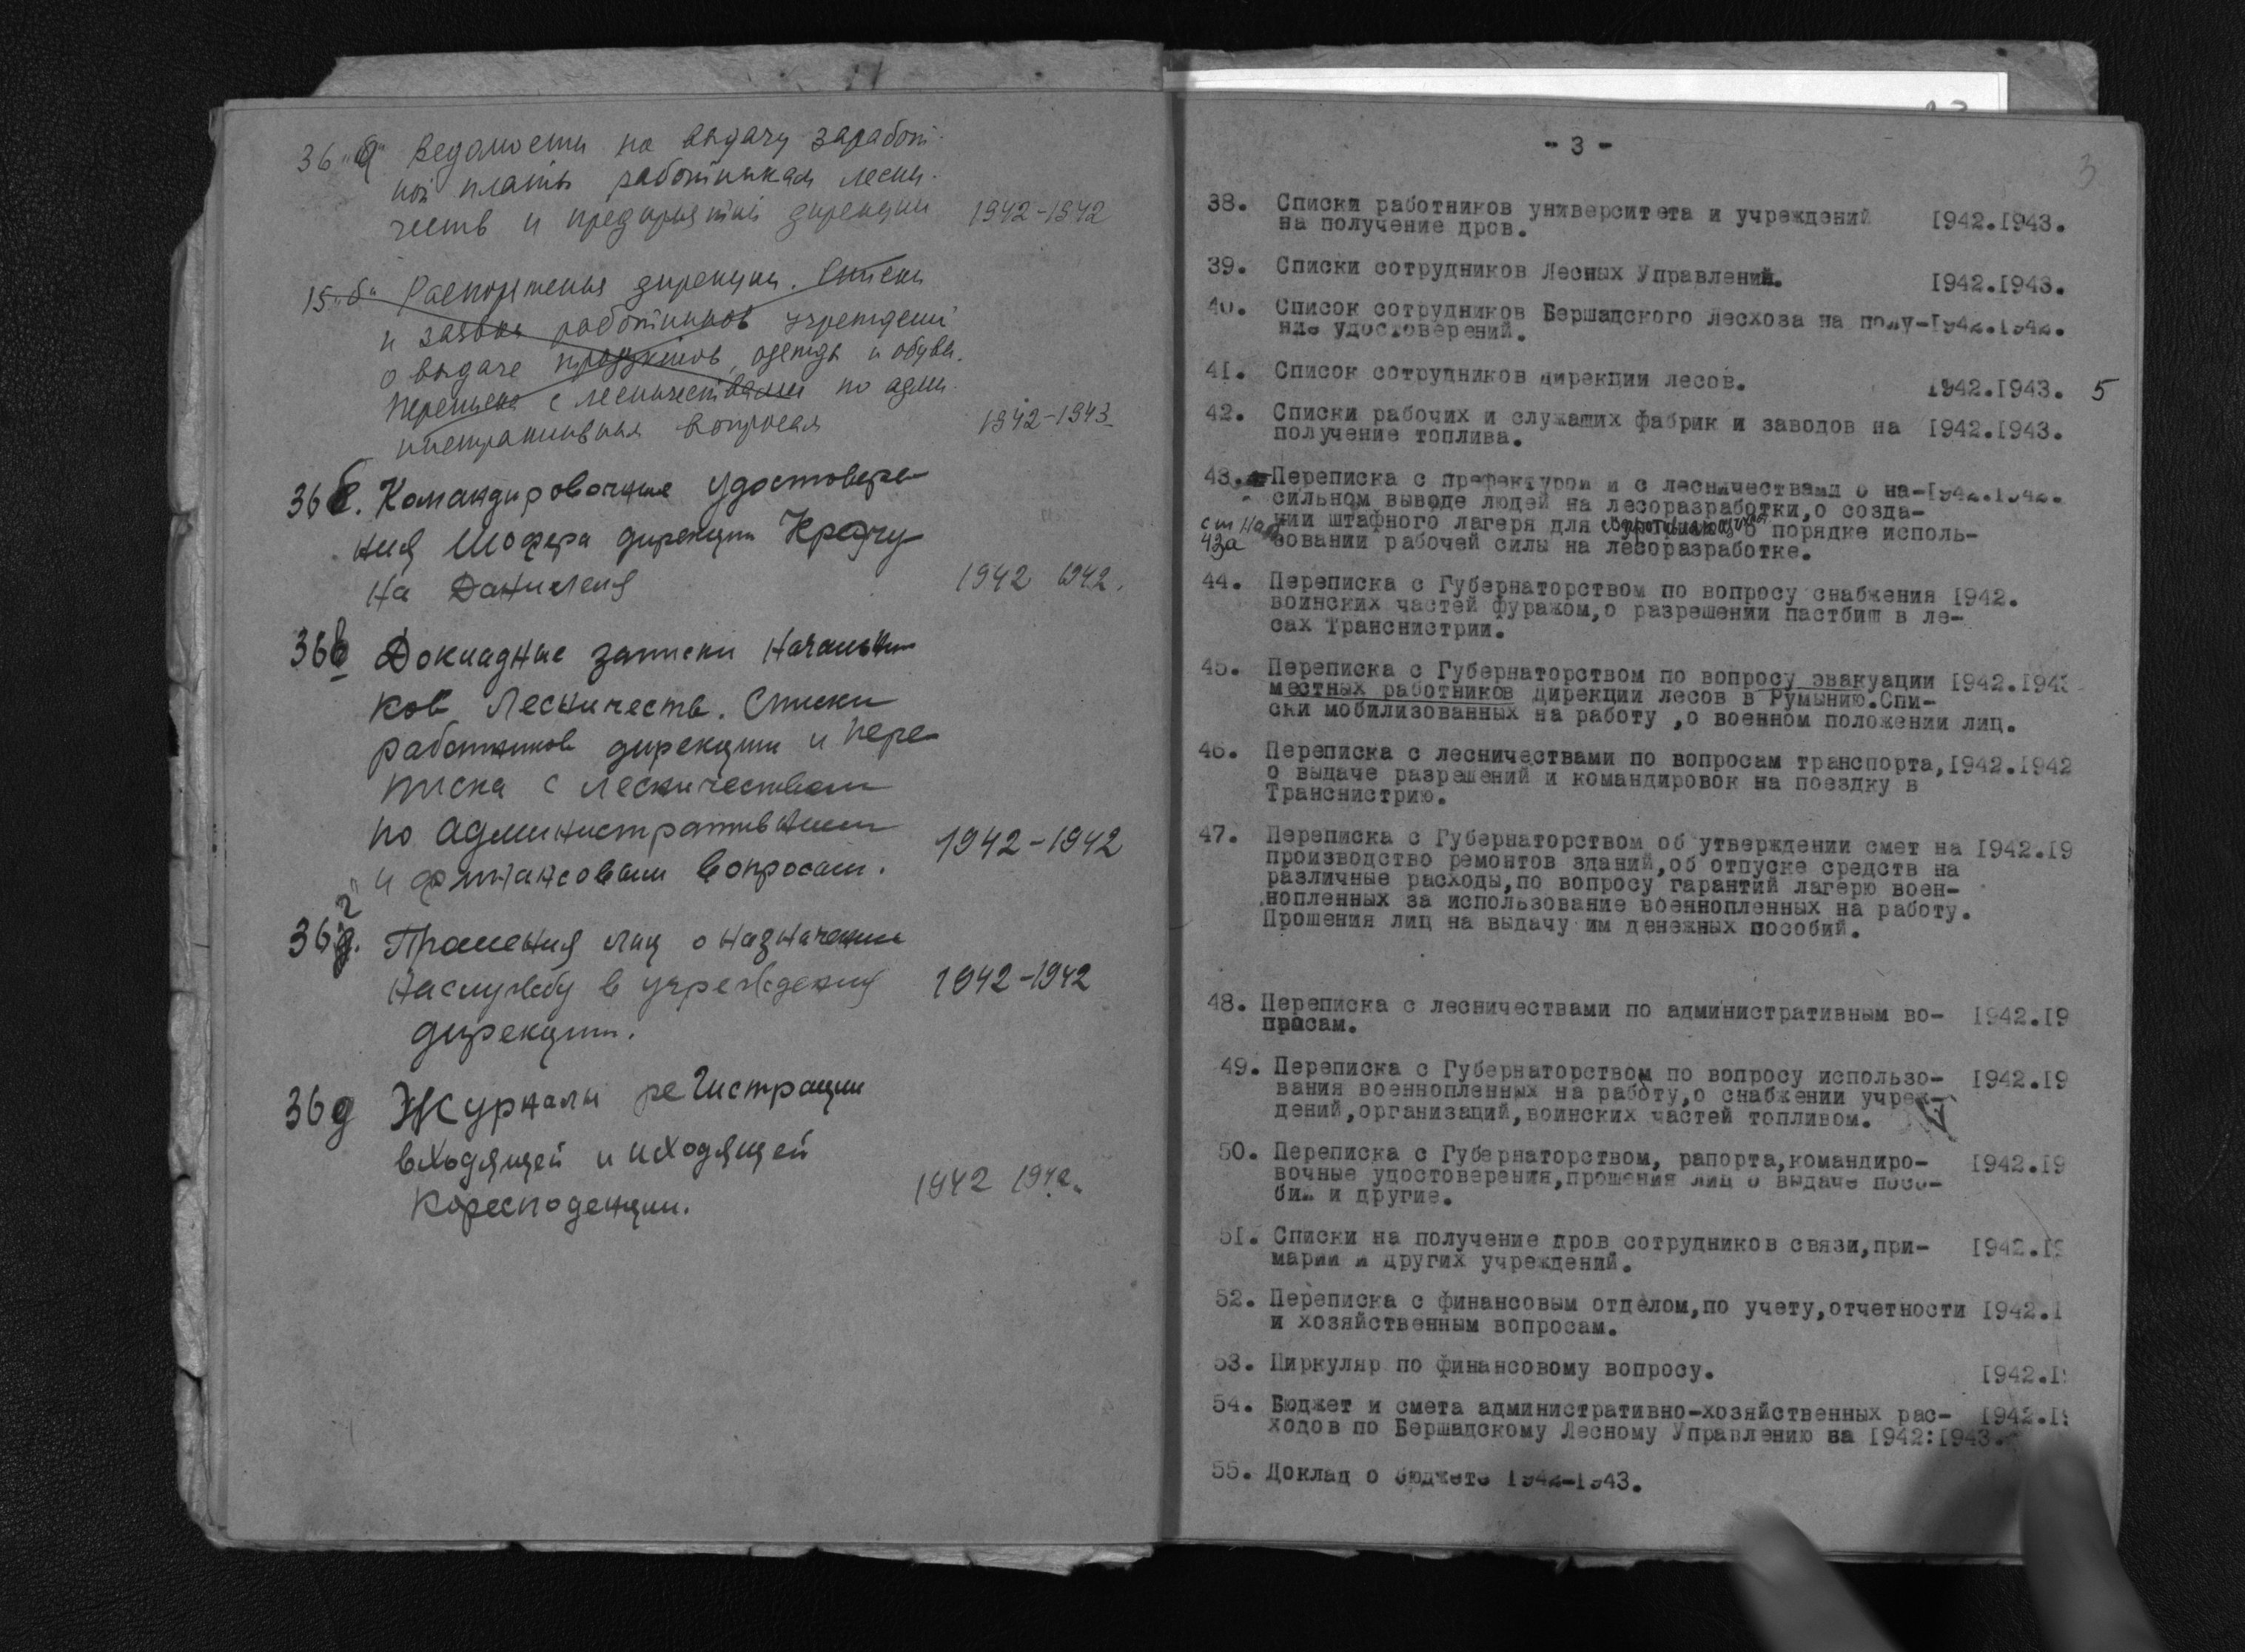 36 "а" Ведомости на выдачу заработ-
ной платы работникам лесни-
честв и предприятий дирекции 1942-1942
15 "б" Распоряжения дирекции. Списки
и заявки работников учреждений
о выдаче продуктов, одежды и обуви.
Переписка с лесничествами по адми-
нистративным вопросам 1942-1943
36 б. Командировочные удостовере-
ния шофера дирекции Крачу-
на Данилея 1942 1942.
36 в Докладные записки начальни-
ков Лесничеств. Списки
работников дирекции и пере-
писка с лесничествами
по административным
и финансовым вопросам. 1942-1942
36 "г" Прошения лиц о назначении
на службу в учреждения 1942-1942
дирекции.
36 д Журналы регистрации
входящей и исходящей
коресподенции. 1942 1942.
- 3 -
3
38. Списки работников университета и учреждений I942.I943.
на получение дров.
39. Списки сотрудников Лесных Управлений. I942.I943.
40. Список сотрудников Бершадского лесхоза на полу-I942.I942.
ние удостоверений.
41. Список сотрудников дирекции лесов. I942.I943. 5
42. Списки рабочих и служащих фабрик и заводов на I942.I943.
получение топлива.
43. Переписка с префектурой и с лесничествами о на-I942.I942.
сильном выводе людей на лесоразработки,о созда-
нии штафного лагеря для сопротивляющихся о порядке исполь-
зовании рабочей силы на лесоразработке.
см на об
43а
44. Переписка с Губернаторством по вопросу снабжения I942.
воинских частей фуражом,о разрешении пастбищ в ле-
сах Транснистрии.
45. Переписка с Губернаторством по вопросу эвакуации I942.I943
местных работников дирекции лесов в Румынию.Спи-
ски мобилизованных на работу ,о военном положении лиц.
46. Переписка с лесничествами по вопросам транспорта,I942.I942
о выдаче разрешений и командировок на поездку в
Транснистрию.
47. Переписка с Губернаторством об утверждении смет на I942.I9
производство ремонтов зданий,об отпуске средств на
различные расходы,по вопросу гарантий лагерю воен-
нопленных за использование военнопленных на работу.
Прошения лиц на выдачу им денежных пособий.
48. Переписка с лесничествами по административным во- I942.I9
просам.
49. Переписка с Губернаторством по вопросу использо- I942.I9
вания военнопленных на работу,о снабжении учреж-
дений,организаций,воинских частей топливом.
50. Переписка с Губернаторством, рапорта,командиро- I942.I9
вочные удостоверения,прошения лиц о выдаче посо-
бий и другие.
51. Списки на получение дров сотрудников связи,при- I942.I9
марии и других учреждений.
52. Переписка с финансовым отделом,по учету,отчетности I942.I
и хозяйственным вопросам.
53. Циркуляр по финансовому вопросу. I942.I
54. Бюджет и смета административно-хозяйственных рас- I942.I9
ходов по Бершадскому Лесному Управлению на I942:I943.
55. Доклад о бюджете I942-I943.